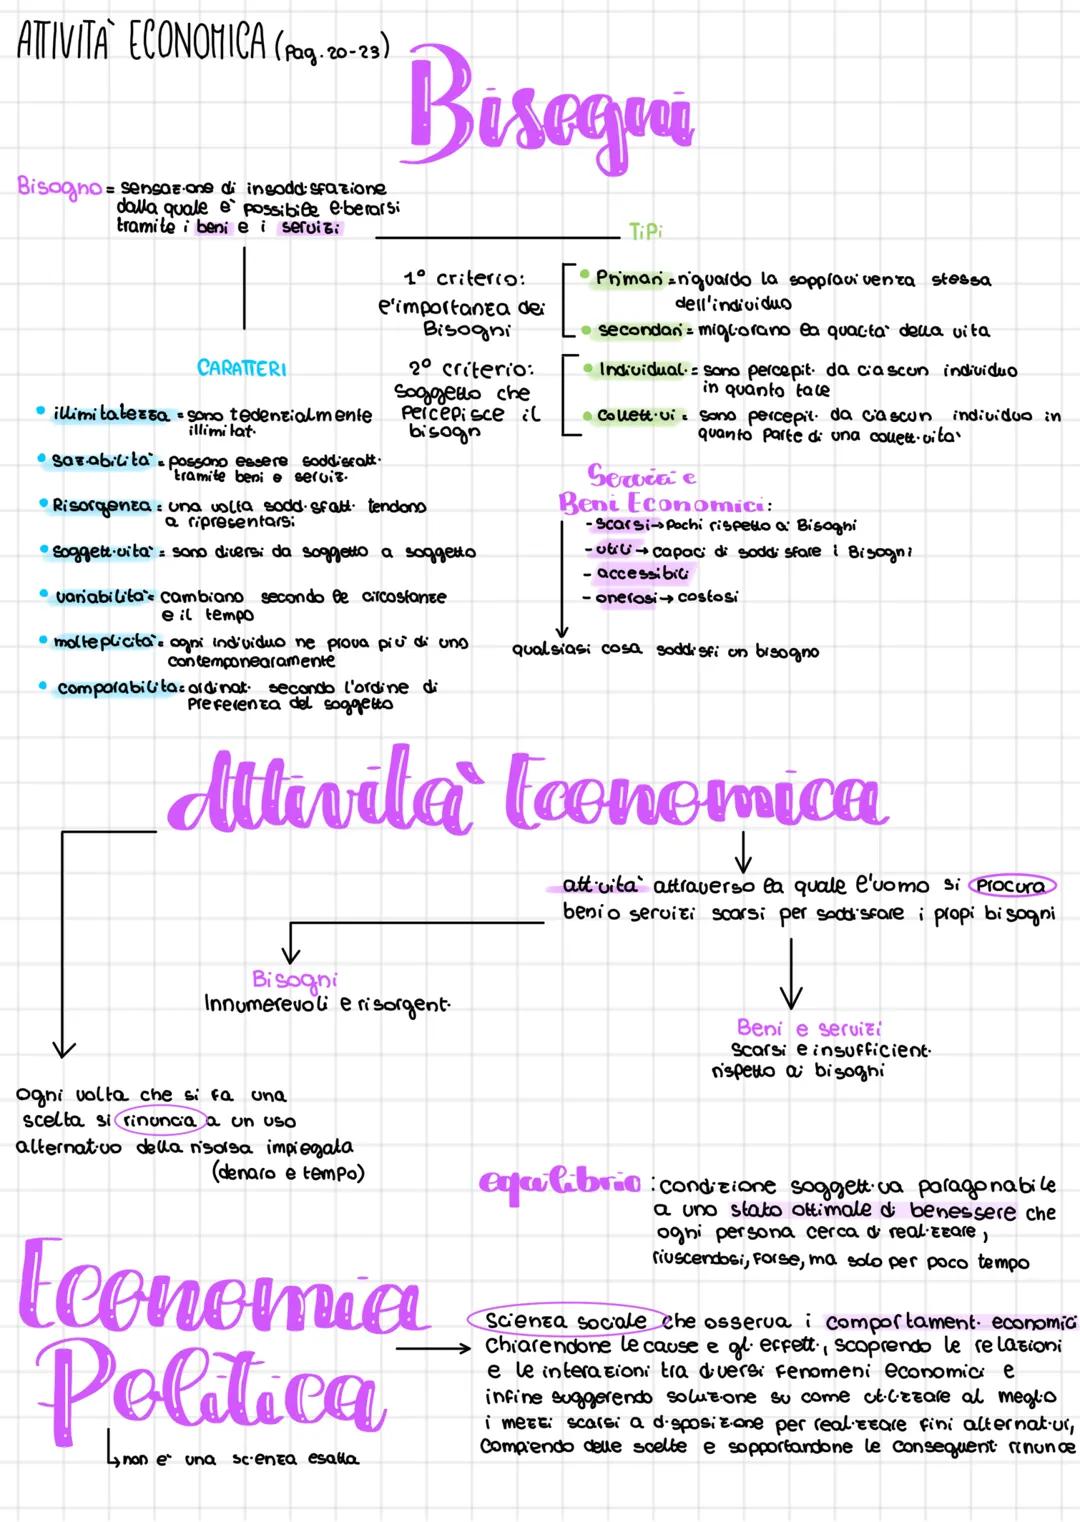 ATTIVITÀ ECONOMICA (Pag. 20-23)
Bisogni
Bisogno = sensazione di insoddisfazione
dalla quale è possibile liberarsi
tramite i beni e i servizi
TiPi
1° criterio:
l'importanza dei
Bisogni
• Primari = riguardo la soppravivenza stessa
dell'individuo
• secondari = migliorano la qualità della vita
2° criterio:
Soggetto che
percepisce il
bisogn
• Individuali = sono percepiti da ciascun individuo
in quanto tale
• Collettivi = sono percepiti da ciascun individuo in
quanto parte di una collettività
CARATTERI
• illimitatezza = sono tedenzialmente
illimitati
• Saziabilità = possono essere soddisfatti
tramite beni e servizi
• Risorgenza = una volta soddisfatti tendono
a ripresentarsi
• Soggettività = sono diversi da soggetto a soggetto
• variabilità = cambiano secondo le circostanze
e il tempo
• molteplicità = ogni individuo ne prova più di uno
contemponearamente
• comparabilità = ordinati secondo l'ordine di
Preferenza del soggetto
Servizi e
Beni Economici:
- scarsi → Pochi rispetto ai Bisogni
- utili → capaci di soddisfare i Bisogni
- accessibili
- onerosi → costosi
qualsiasi cosa soddisfi un bisogno
Attività Economica
attività attraverso la quale l'uomo si procura
beni o servizi scarsi per soddisfare i propi bisogni
Bisogni
Innumerevoli e risorgenti
Beni e servizi
Scarsi e insufficienti
rispetto ai bisogni
Ogni volta che si fa una
scelta si rinuncia a un uso
alternativo della risorsa impiegata
(denaro e tempo)
equilibrio : condizione soggettiva paragonabile
a uno stato ottimale di benessere che
ogni persona cerca di realizzare,
riuscendosi, forse, ma solo per poco tempo
Economia
Politica
Scienza sociale che osserva i comportamenti economici
Chiarendone le cause e gli effetti, scoprendo le relazioni
e le interazioni tra diversi fenomeni economici e
infine suggerendo soluzione su come utilizzare al meglio
i mezzi scarsi a disposizione per realizzare fini alternativi,
Compiendo delle scelte e sopportandone le conseguenti rinunce
↳ non è una scienza esatta